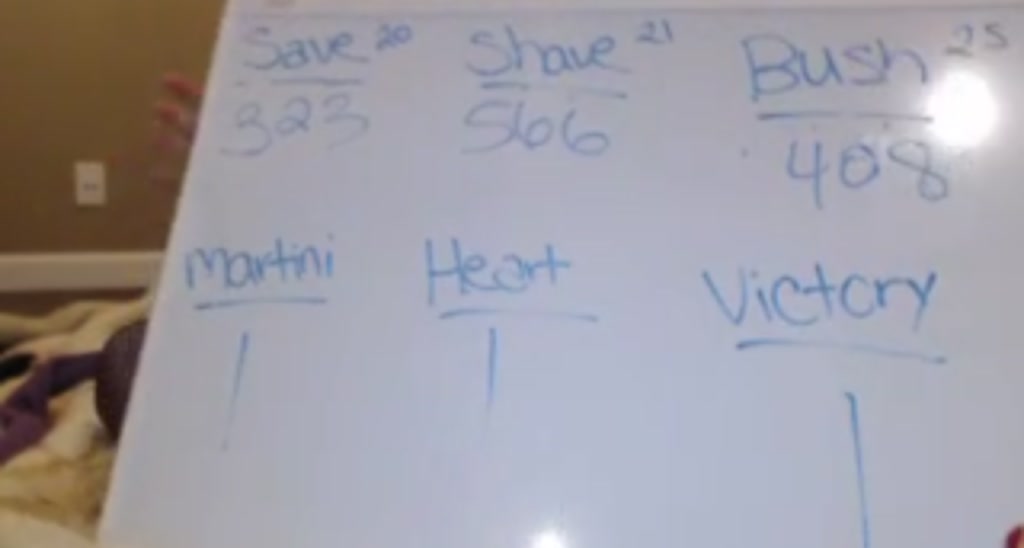 Save 20 Shave 21 Bush 25
323 566 408
Martini Heart Victory
1 1 1